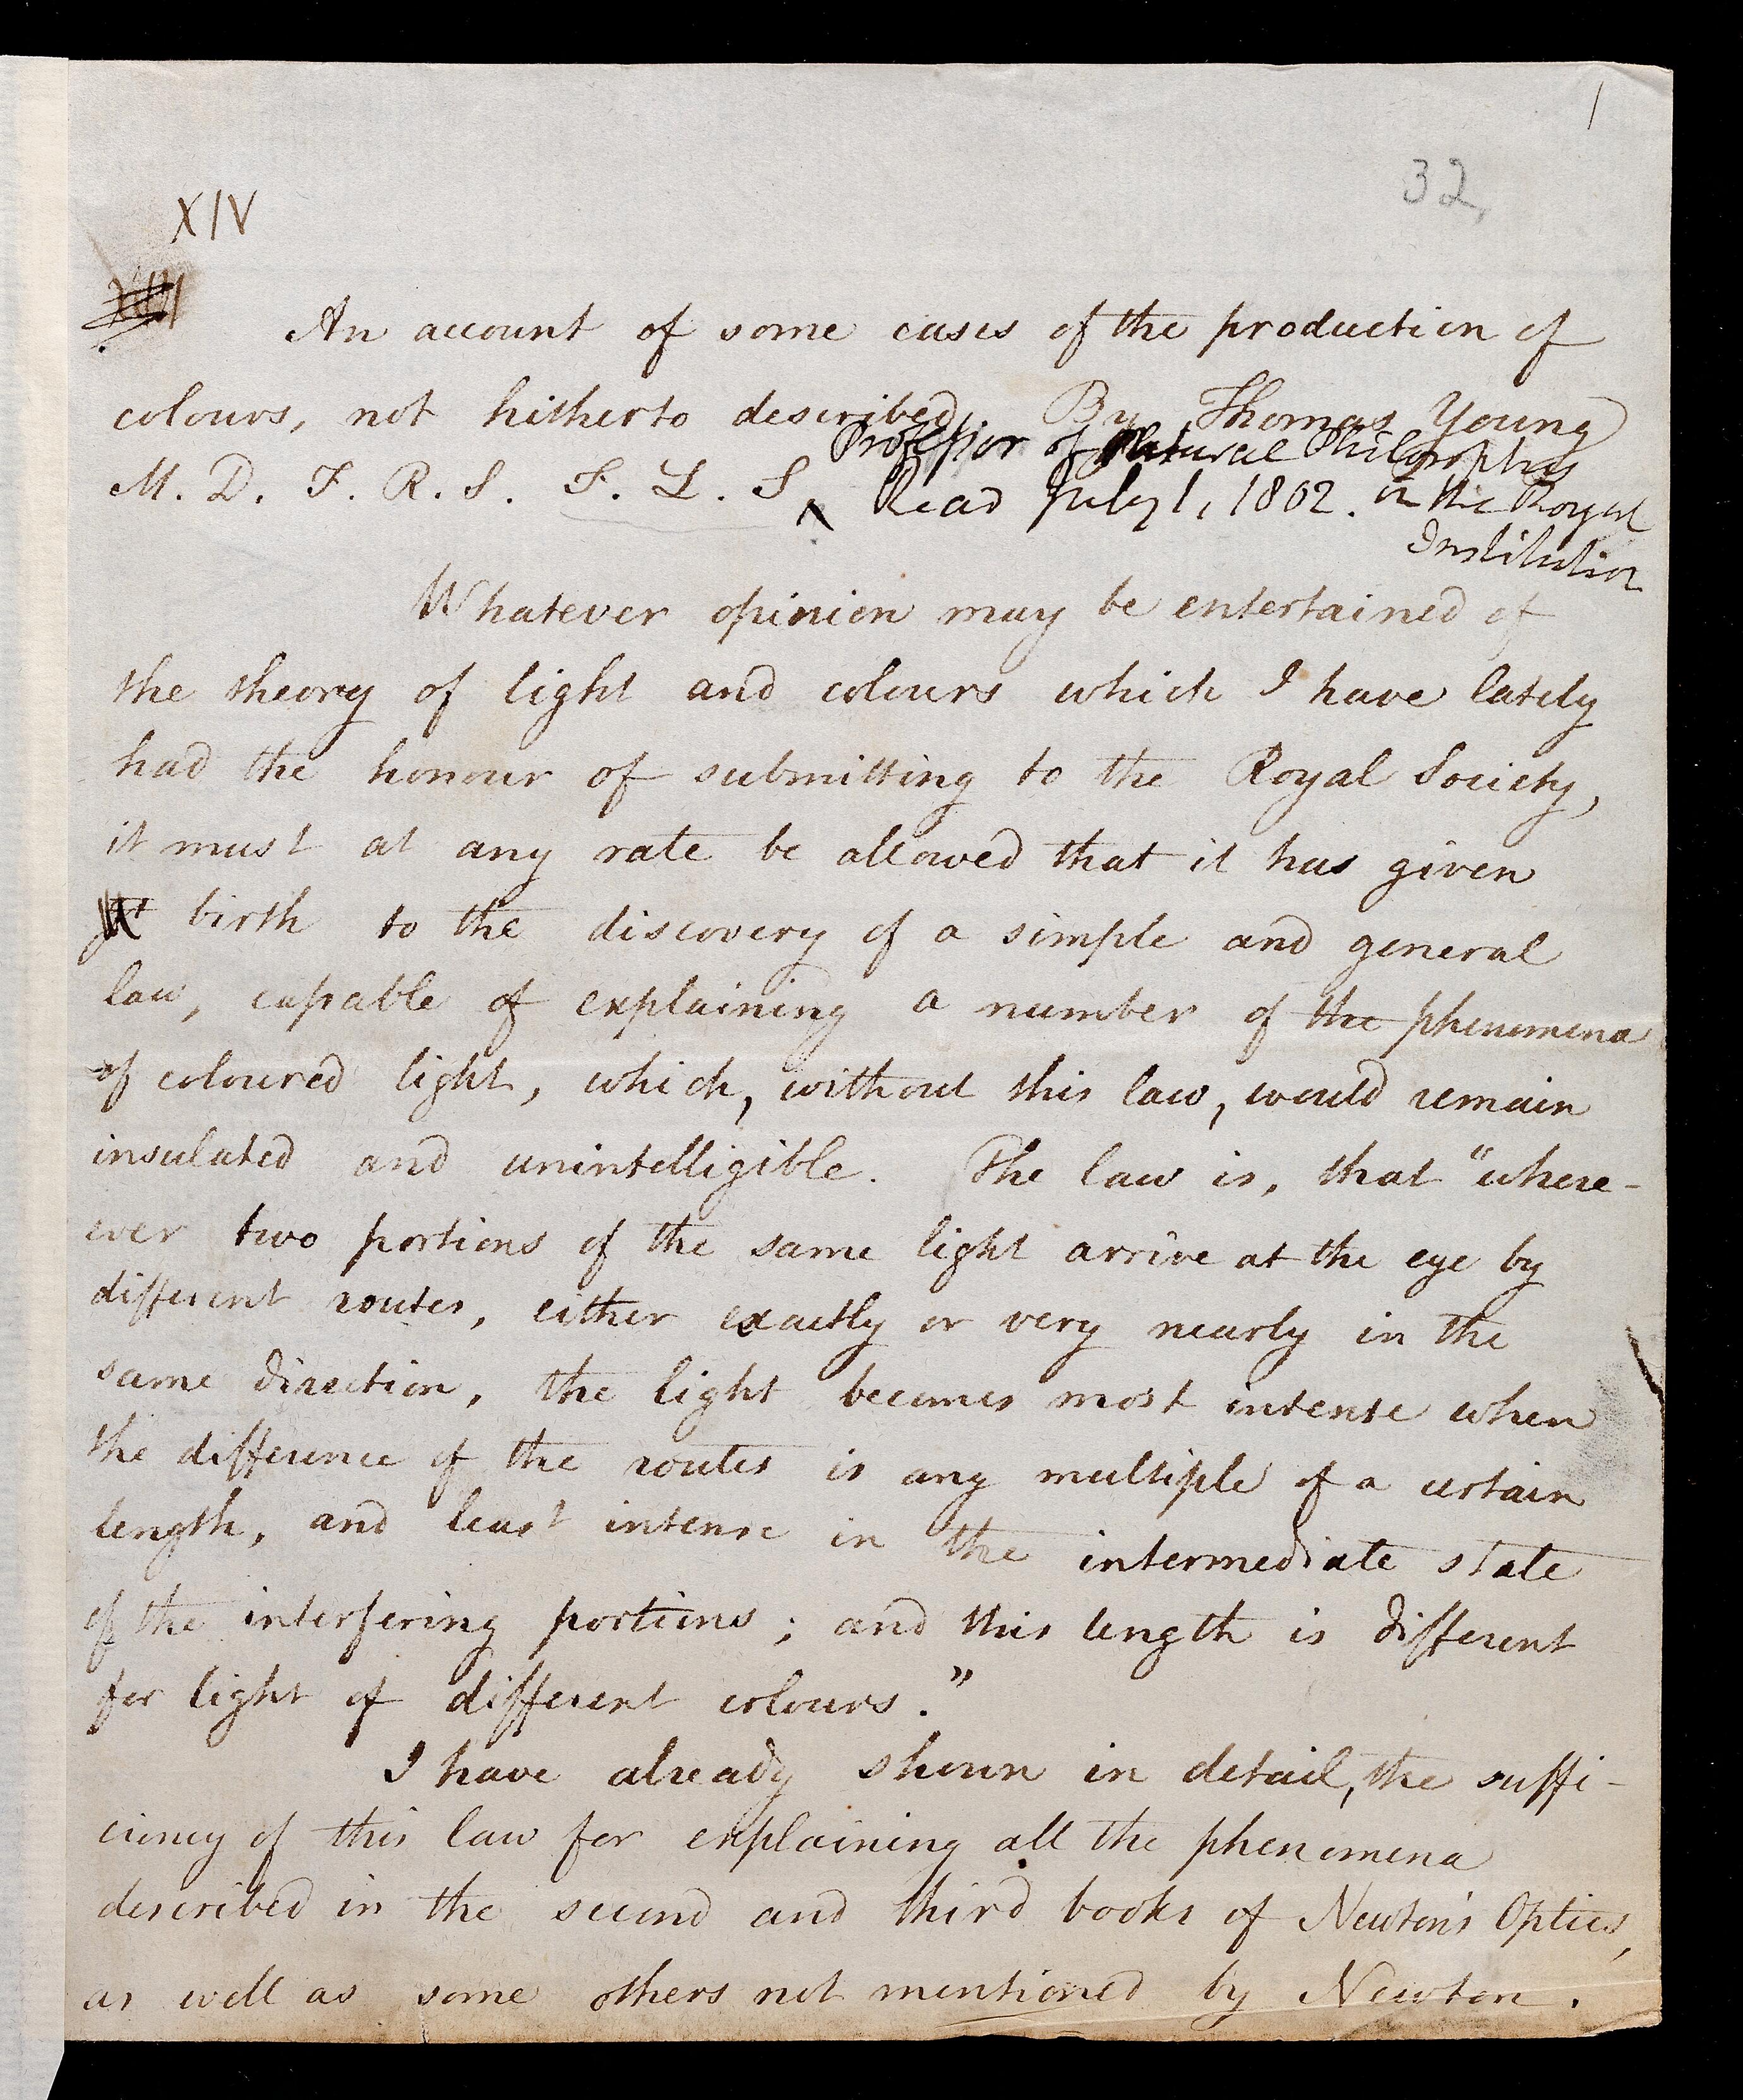 1
32,
XIV
An account of some cases of the production of
colours, not hitherto described. By Thomas Young
Professor of Natural Philosophy
M. D. F. R. S. F. L. S. ^ Read July 1, 1802. in the Royal
Institution
Whatever opinion may be entertained of
the theory of light and colours which I have lately
had the honour of submitting to the Royal Society,
it must at any rate be allowed that it has given
birth to the discovery of a simple and general
law, capable of explaining a number of the phenomena
of coloured light, which, without this law, would remain
insulated and unintelligible. The law is, that "where-
ever two portions of the same light arrive at the eye by
different routes, either exactly or very nearly in the
same direction, the light becomes most intense when
the difference of the routes is any multiple of a certain
length, and least intense in the intermediate state
of the interfering portions; and this length is different
for light of different colours."
I have already shown in detail, the suffi-
ciency of this law for explaining all the phenomena
described in the second and third books of Newton's Optics,
as well as some others not mentioned by Newton.